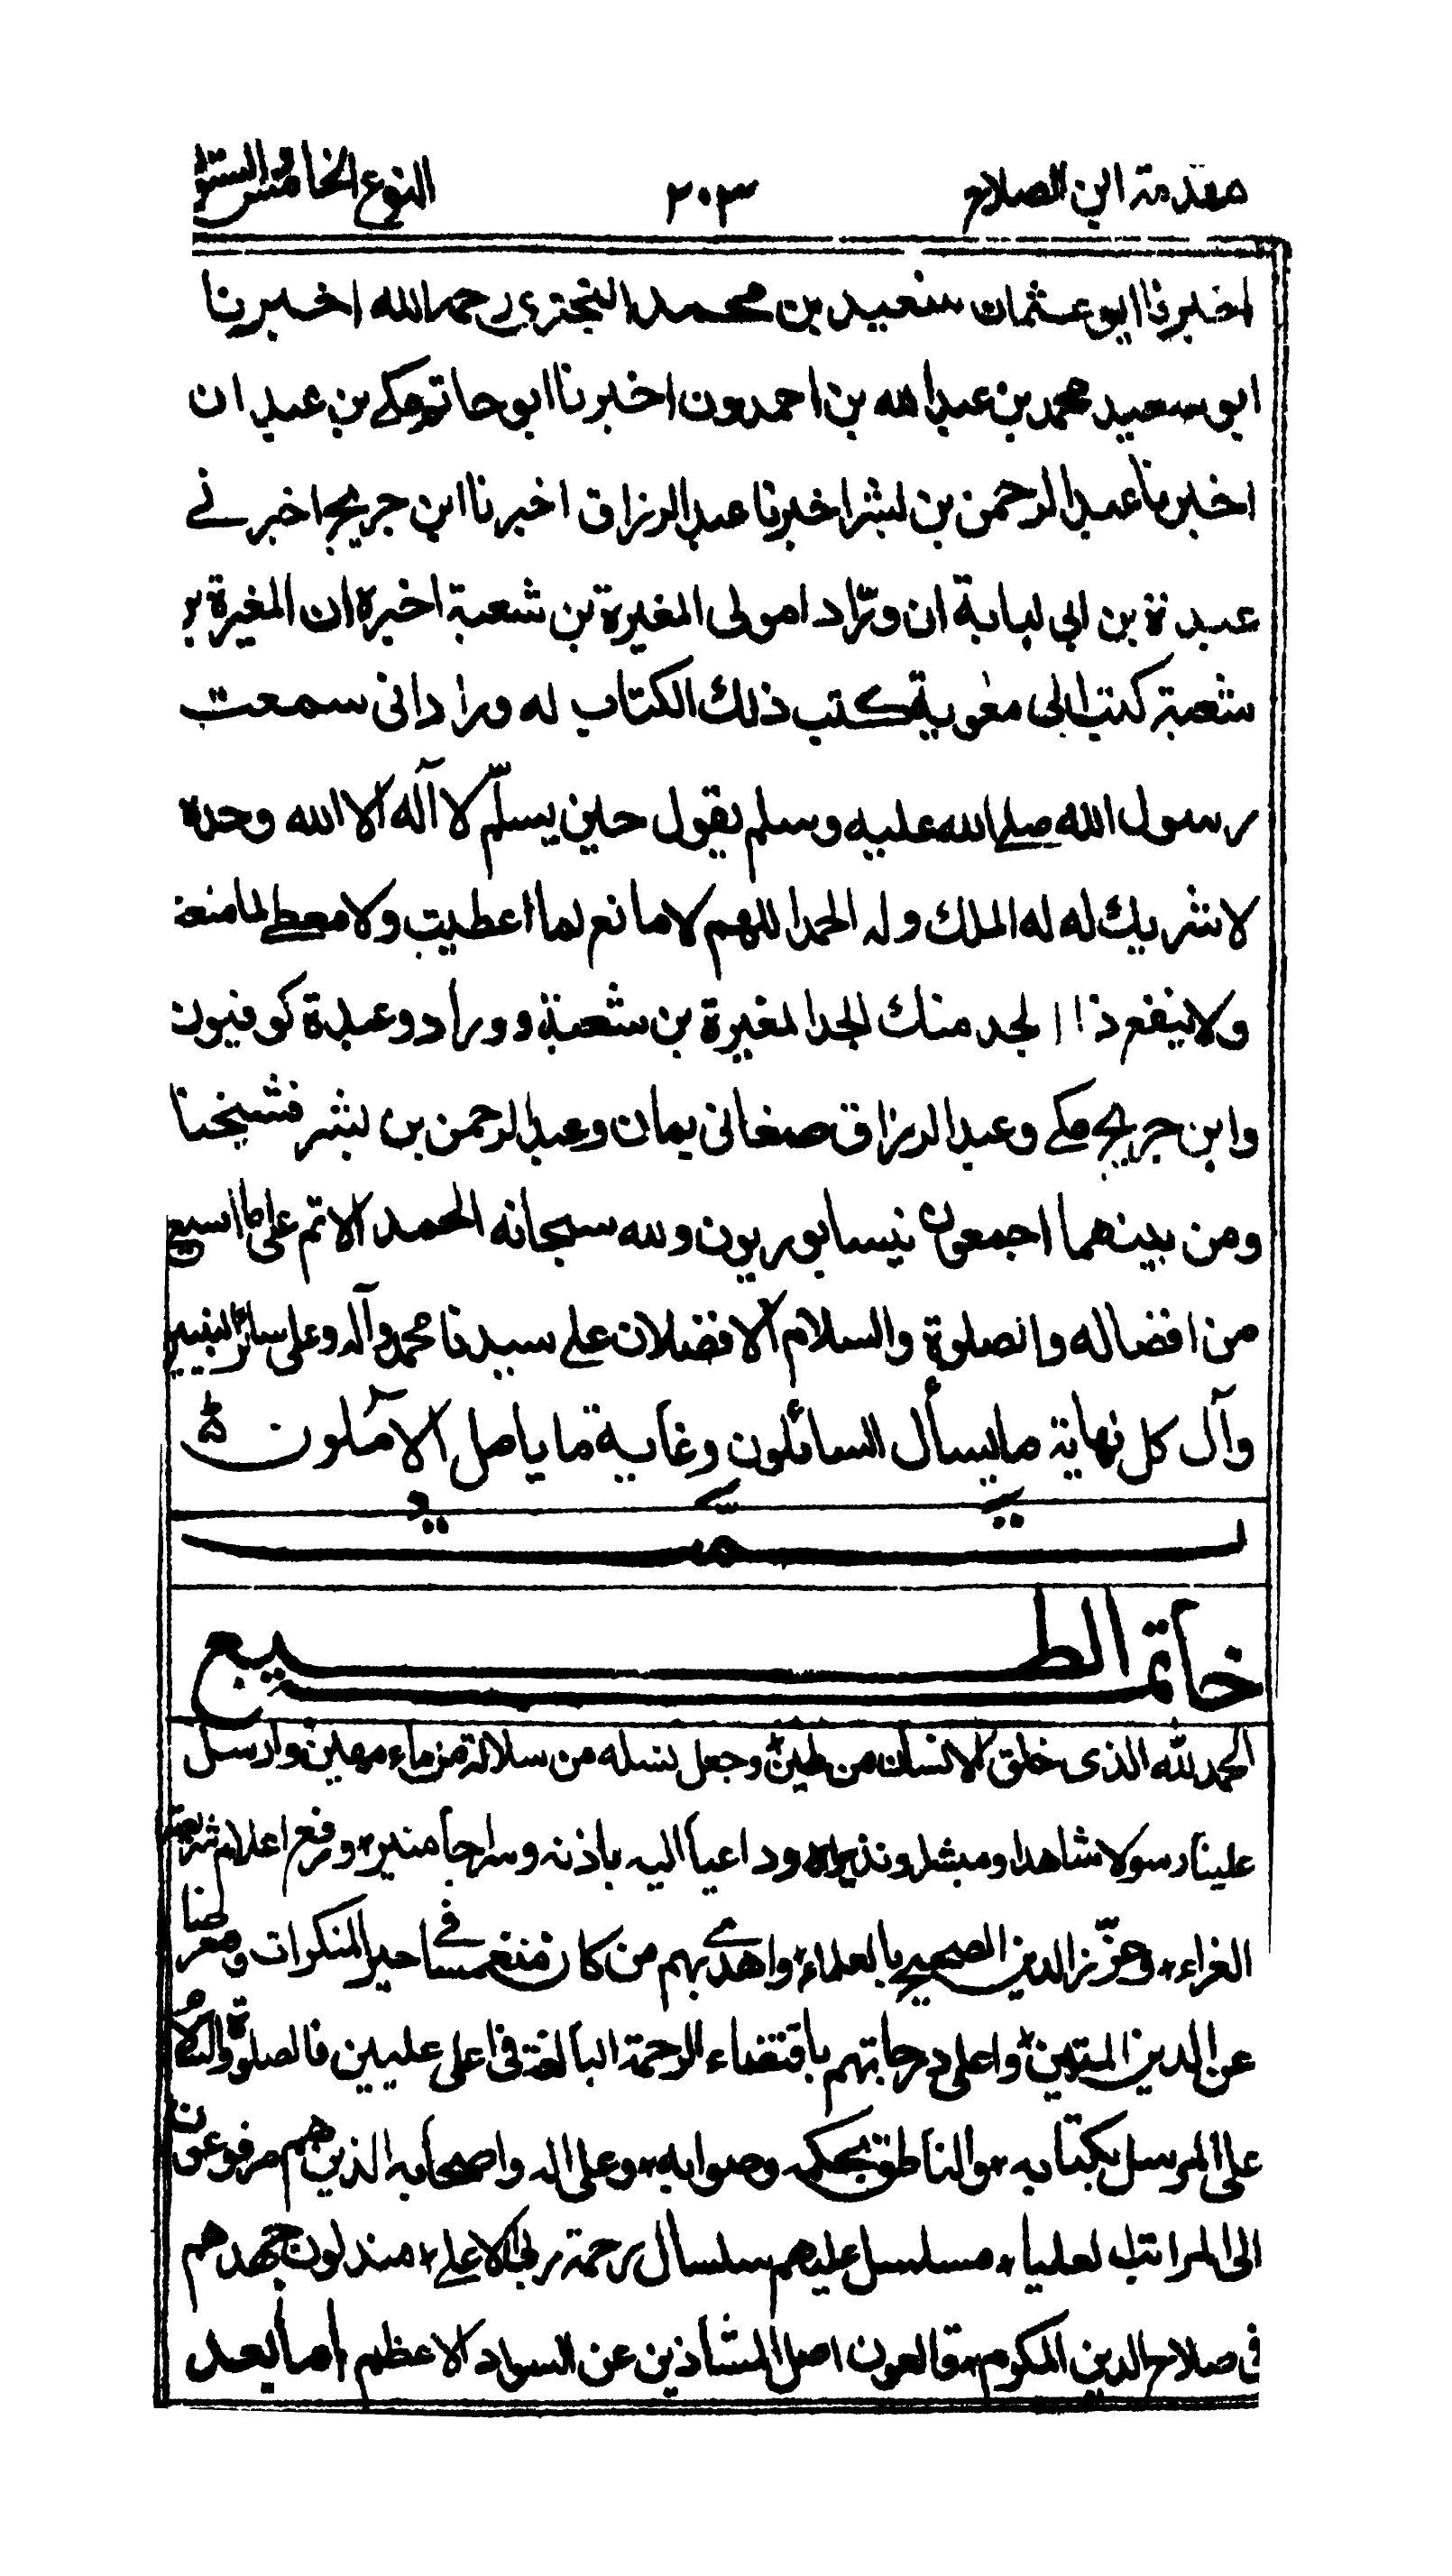 مقدمة ابن الصلاح ٢٠٣ النوع الخامس والستون
اخبرنا ابو عثمان سعيد بن محمد البحتري رحمه الله اخبرنا
ابو سعيد محمد بن عبد الله بن احمدون اخبرنا ابو حاتم مكي بن عبدان
اخبرنا عبد الرحمن بن بشر اخبرنا عبد الرزاق اخبرنا ابن جريج اخبرني
عبدة بن ابي لبابة ان ورّادا مولى المغيرة بن شعبة اخبره ان المغيرة بن
شعبة كتب الى معٰوية كتب ذلك الكتاب له وراد اني سمعت
رسول الله صلے الله عليه وسلم يقول حين يسلّم لا آله الا الله وحده
لا شريك له له الملك وله الحمد اللهم لا مانع لما اعطيت ولا معطے لما منعت
ولا ينفع ذا الجد منك الجد المغيرة بن شعبة ووراد وعبدة كوفيون
وابن جريج مكے وعبد الرزاق صنعاني يمان وعبد الرحمن بن بشر فشيخنا
ومن بينهما اجمعون نيسابوريون ولله سبحانه الحمد الاتم على ما اسبغ
من افضاله والصلوة والسلام الافضلان علے سيدنا محمد وآله وعلى سائر النبيين
وآل كل نهاية ما يسأل السائلون وغاية ما يامل الآملون
خاتمة الطبع
الحمد لله الذى خلق الانسان من طين وجعل نسله من سلالة من ماء مهين وارسل
علينا رسولا شاهدا ومبشرا ونذيرا ٭ وداعياً اليه باذنه وسراجاً منيرا ٭ ورفع اعلام شريعته
الغراء ٭ وعزّز الدين الصحيح بالعلماء ٭ واهدے بهم من كان منغمسا في المنكرات ومعرضا
عن الدين المتين ٭ واعلى درجاتهم باقتضاء الرحمة البالغة في اعلى عليين فالصلوة والسلام
على المرسل بكتابه ٭ والناطق بحكمه وصوابه ٭ وعلى اله واصحابه الذين هم مرفوعون
الى المراتب العلياء ٭ مسلسل عليهم سلسال رحمة ربى الاعلے ٭ مبذلون جهدهم
في صلاح الدين المكوم ٭ قالعون اصل الشاذين عن السواد الاعظم اما بعد